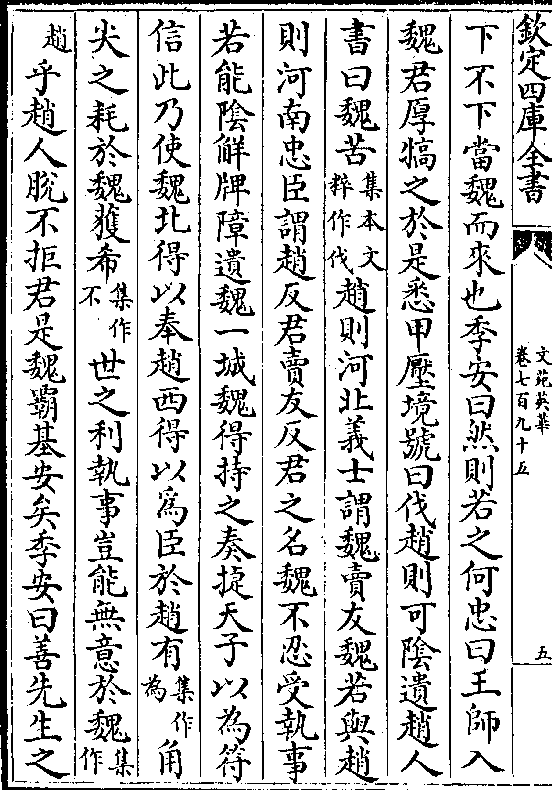 欽定四庫全書
文苑英華
卷七百九十五
五
下不下當魏而來也季安曰然則若之何忠曰王師入
魏君厚犒之於是悉甲壓境號曰伐趙則可陰遺趙人
書曰魏苦集本文粹作伐趙則河北義士謂魏賣友魏若與趙
則河南忠臣謂趙反君賣友反君之名魏不忍受執事
若能陰觧牌障遺魏一城魏得持之奏㨗天子以為符
信此乃使魏北得以奉趙西得以為臣於趙有集作為角
尖之耗於魏獲希集作不世之利執事豈能無意於魏集作
趙乎趙人脫不拒君是魏霸基安矣季安曰善先生之